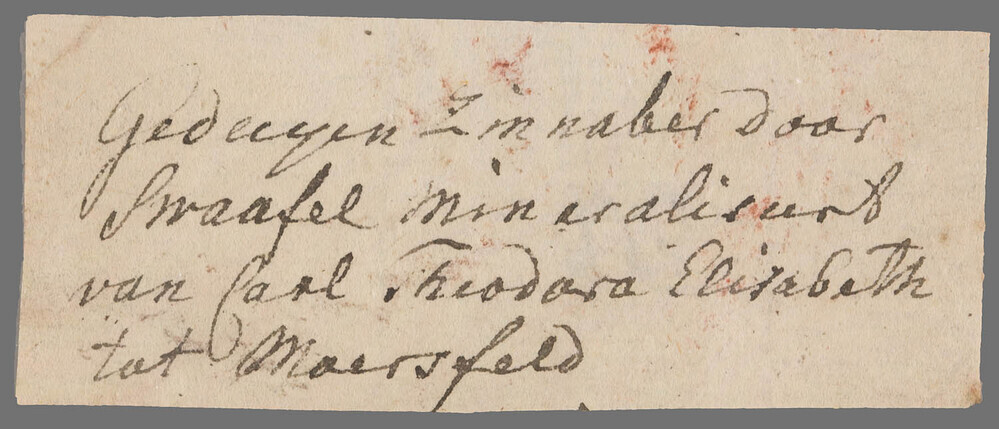 Gedeegen Zinnaber door
Swaafel Mineraliseert
van Carl Theodora Elisabeth
tot Moersfeld